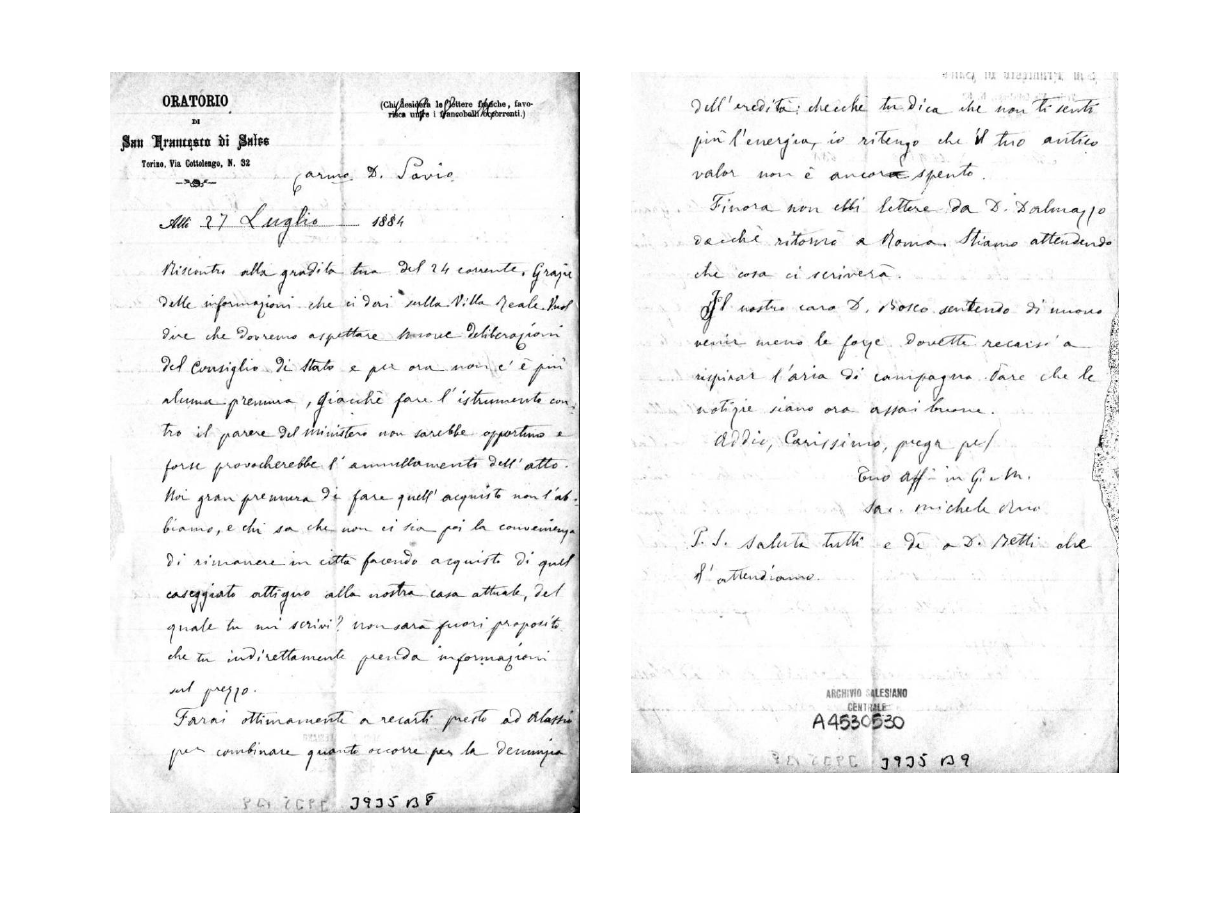 ORATORIO
DI
San Francesco di Sales
Torino, Via Cottolengo, N. 32
(Chi desidera le lettere franche, favo-
risca unire i francobolli occorrenti.)
Carmo D. Savio
Alli 27 Luglio 1884
Riscontro alla gradita tua del 24 corrente. Grazie
delle informazioni che ci dai sulla Villa Reale. Vuol
dire che dovremo aspettare nuove deliberazioni
del Consiglio di Stato e per ora non c'è più
alcuna premura, giacchè fare l'istrumento con-
tro il parere del ministero non sarebbe opportuno e
forse provocherebbe l'annullamento dell'atto.
Noi gran premura di fare quell'acquisto non l'ab-
biamo, e chi sa che non ci sia poi la convenienza
di rimanere in città facendo acquisto di quel
caseggiato attiguo alla nostra casa attuale, del
quale tu mi scrivi? Non sarà fuori proposito
che tu indirettamente prenda informazioni
sul prezzo.
Farai ottimamente a recarti presto ad Alassio
per combinare quanto occorre per la denunzia
J935 B8
dell'eredità; checchè tu dica che non ti senti
più l'energia, io ritengo che il tuo antico
valor non è ancora spento.
Finora non ebbi lettere da D. Dalmazzo
dacchè ritornò a Roma. Stiamo attendendo
che cosa ci scriverà.
Il nostro caro D. Bosco sentendo di nuovo
venir meno le forze dovette recarsi a
respirar l'aria di campagna. Pare che le
notizie siano ora assai buone.
Addio, Carissimo, prega pel
Tuo aff. in G. e M.
Sac. Michele Rua
P.S. Saluta tutti e di' a D. Betti che
l'attendiamo.
ARCHIVIO SALESIANO
CENTRALE
A4530530
J935 B9